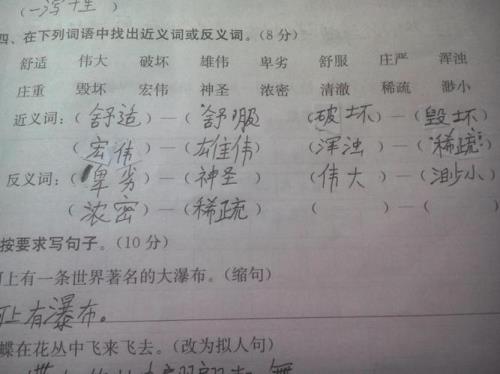 (一泻千里)
四、在下列词语中找出近义词或反义词。(8分)
舒适 伟大 破坏 雄伟 卑劣 舒服 庄严 浑浊
庄重 毁坏 宏伟 神圣 浓密 清澈 稀疏 渺小
近义词:(舒适)—(舒服) (破坏)—(毁坏)
(宏伟)—(雄伟) (浑浊)—(稀疏)
反义词:(卑劣)—(神圣) (伟大)—(渺小)
(浓密)—(稀疏) ( )—( )
按要求写句子。(10分)
上有一条世界著名的大瀑布。(缩句)
上有瀑布。
蝶在花丛中飞来飞去。(改为拟人句)